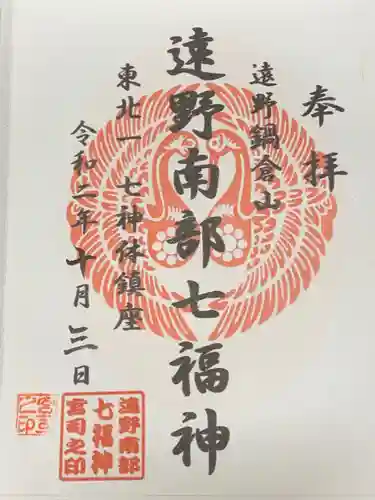 奉拝
遠野鍋倉山
遠野南部七福神
東北一 七神体鎮座
令和二年十月三日
遠野南部
七福神
宮司之印